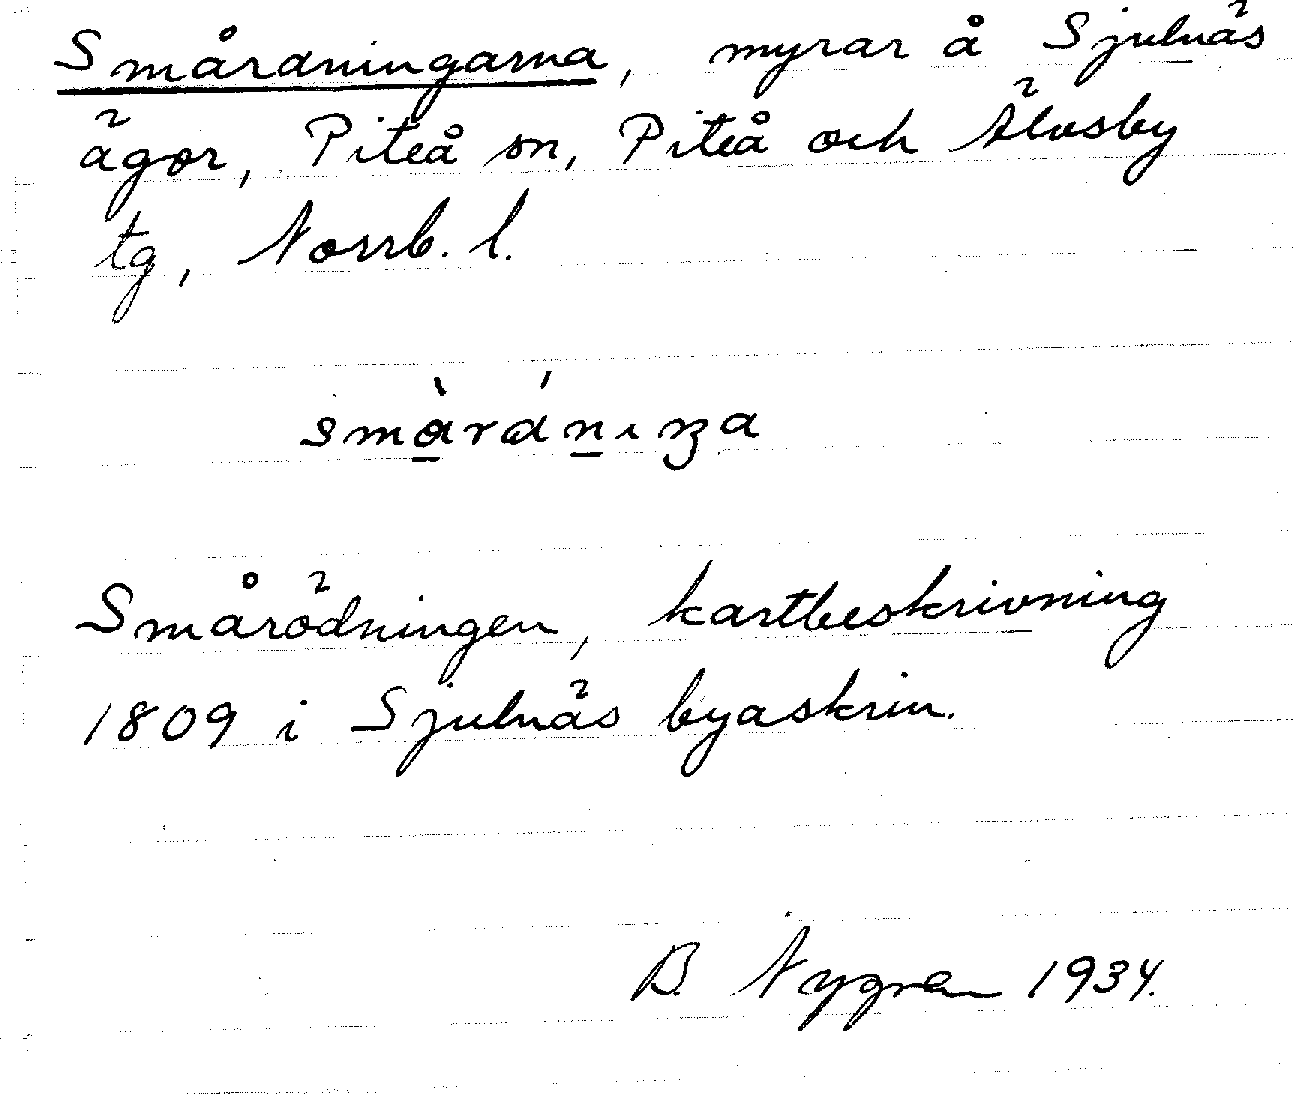 Smårdningarna, myrar å Sjulnäs
ägor, Piteå sn, Piteå och Älvsby
tg, Norrb. l.
smàrdńıŋa
Smårödningen, kartbeskrivning
1809 i Sjulnäs byaskrin.
B. Nygren 1934.